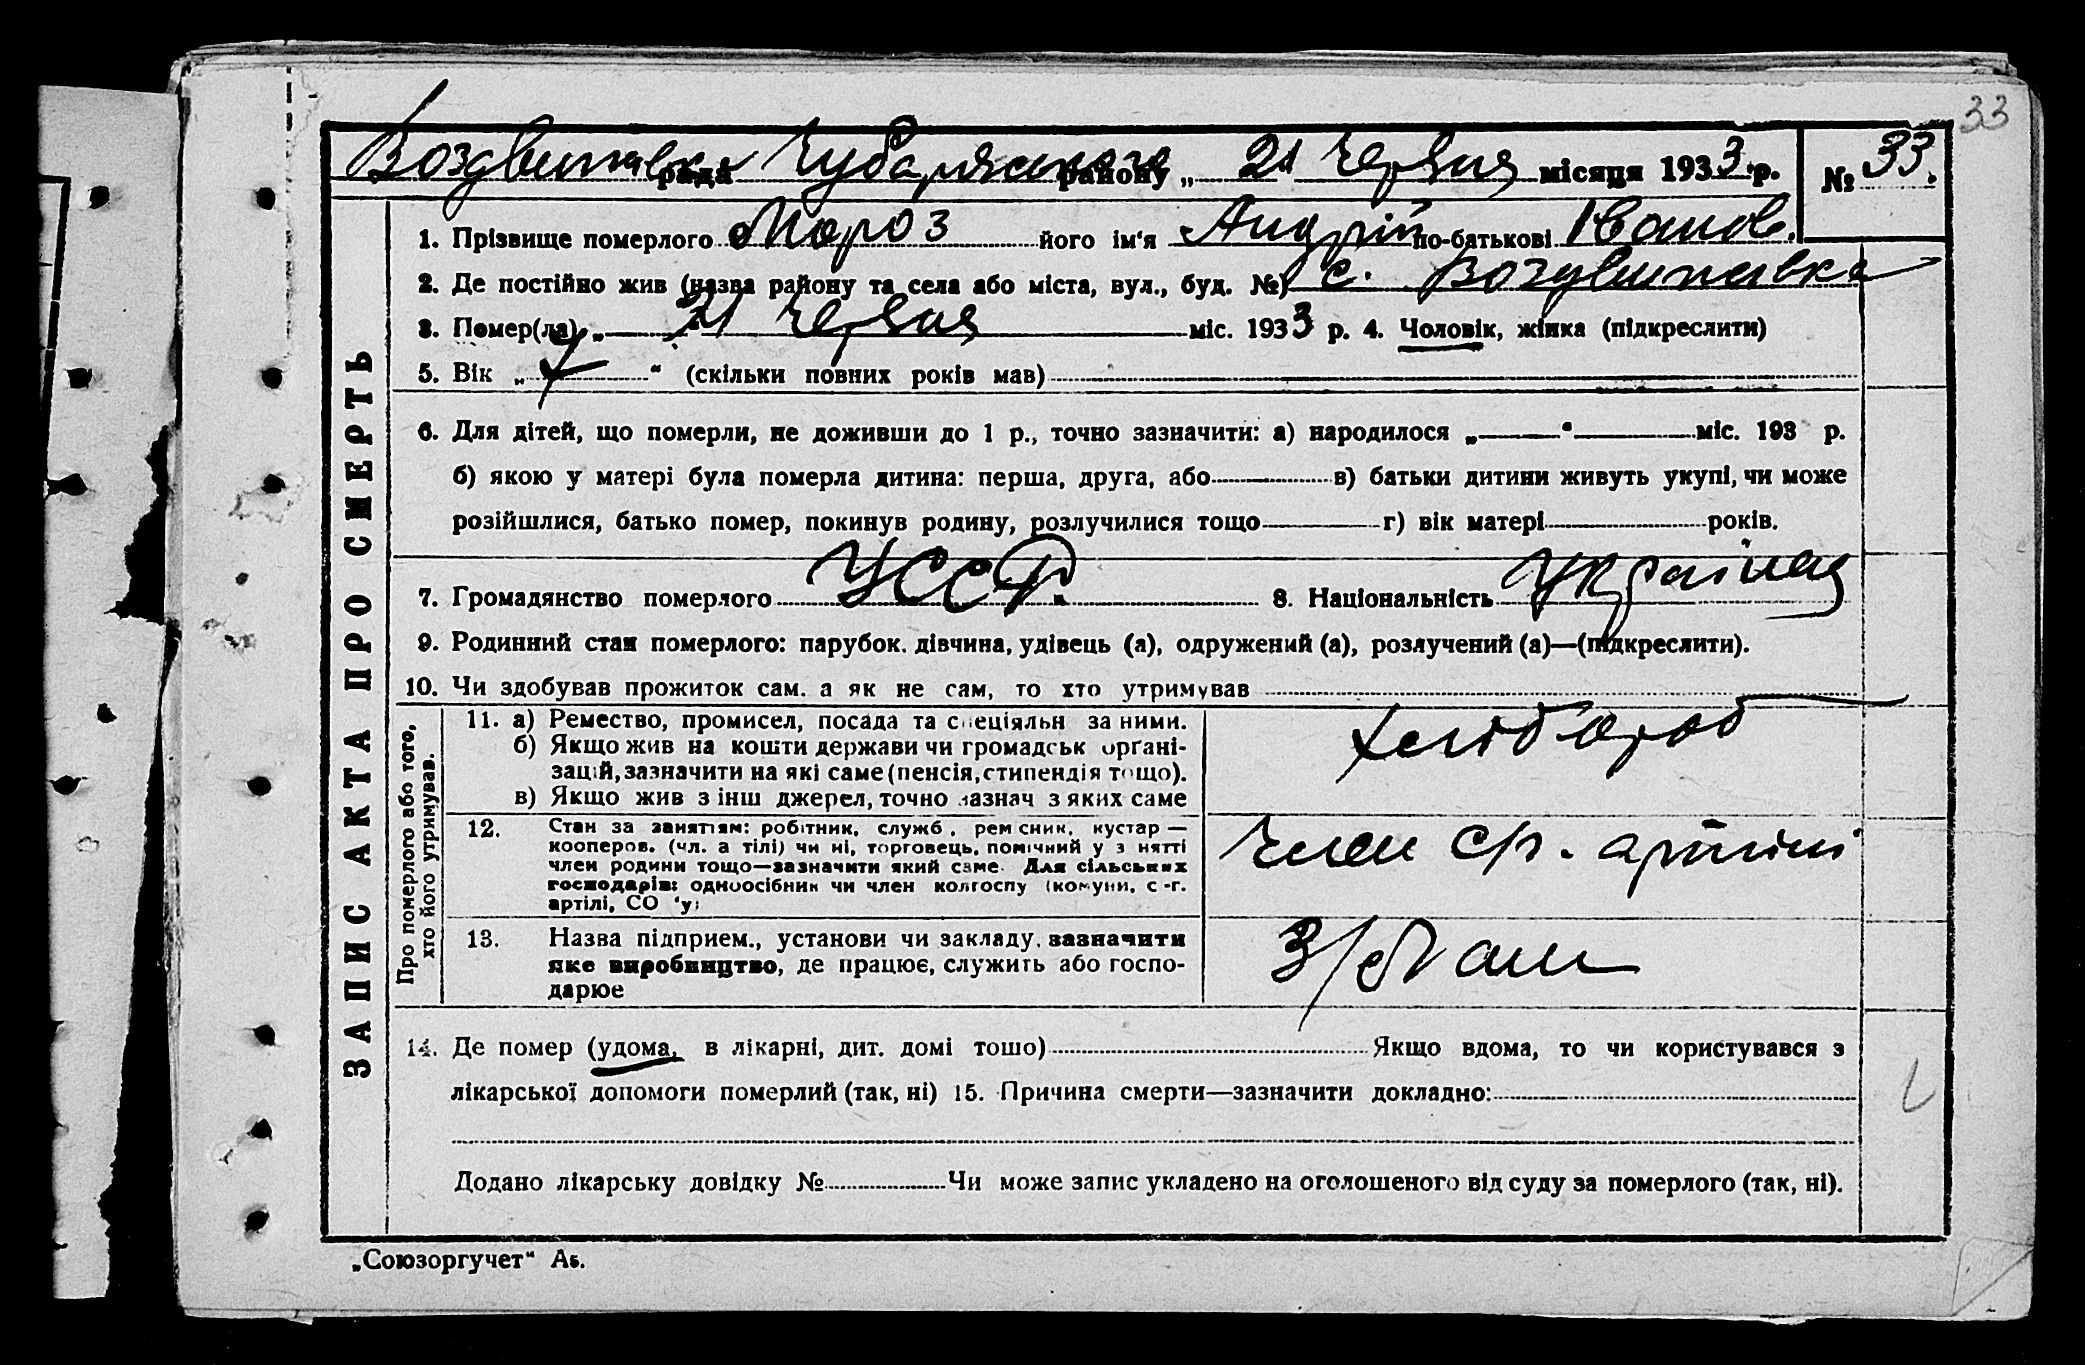 33
Воздвижівка рада Чубарівського району „ 21 Червня місяця 1933 р. № 33.
1. Прізвище померлого Мороз його ім'я Андрій по-батькові Іванов.
2. Де постійно жив (назва району та села або міста, вул., буд. №) с. Воздвижівка
3. Помер(ла) „ 21 Червня міс. 1933 р. 4. Чоловік, жінка (підкреслити)
5. Вік „ 7 “ (скільки повних років мав)
6. Для дітей, що померли, не доживши до 1 р., точно зазначити: а) народилося „ “ міс. 193 р.
б) якою у матері була померла дитина: перша, друга, або в) батьки дитини живуть укупі, чи може
розійшлися, батько помер, покинув родину, розлучилися тощо г) вік матері років.
7. Громадянство померлого УССР. 8. Національність
9. Родинний стан померлого: парубок. дівчина, удівець (а), одружений (а), розлучений (а)—(підкреслити).
10. Чи здобував прожиток сам. а як не сам, то хто утримував
ЗАПИС АКТА ПРО СМЕРТЬ
Про померлого або того,
хто його утримував.
11. а) Ремество, промисел, посада та спеціяльн за ними.
б) Якщо жив на кошти держави чи громадськ орґані-
зацій, зазначити на які саме (пенсія, стипендія тощо).
в) Якщо жив з інш джерел, точно зазнач з яких саме
хлібороб
12. Стан за заняттям: робітник, служб., рем сник, кустар —
кооперов. (чл. а тілі) чи ні, торговець, помічний у з нятті
член родини тощо—зазначити який саме. Для сільських
господарів: одноосібник чи член колгоспу (комуни, с -г.
артілі, СО 'у)
Член ср. артілі
13. Назва підприєм., установи чи закладу, зазначити
яке виробництво, де працює, служить або госпо-
дарює
14. Де помер (удома, в лікарні, дит. домі тощо) Якщо вдома, то чи користувався з
лікарської допомоги померлий (так, ні) 15. Причина смерти—зазначити докладно:
Додано лікарську довідку № Чи може запис укладено на оголошеного від суду за померлого (так, ні).
„Союзоргучет“ А5.